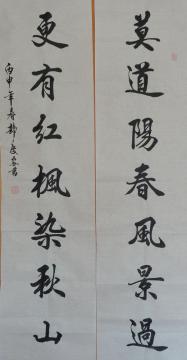 莫道陽春風景過
更有紅楓染秋山
丙申年春